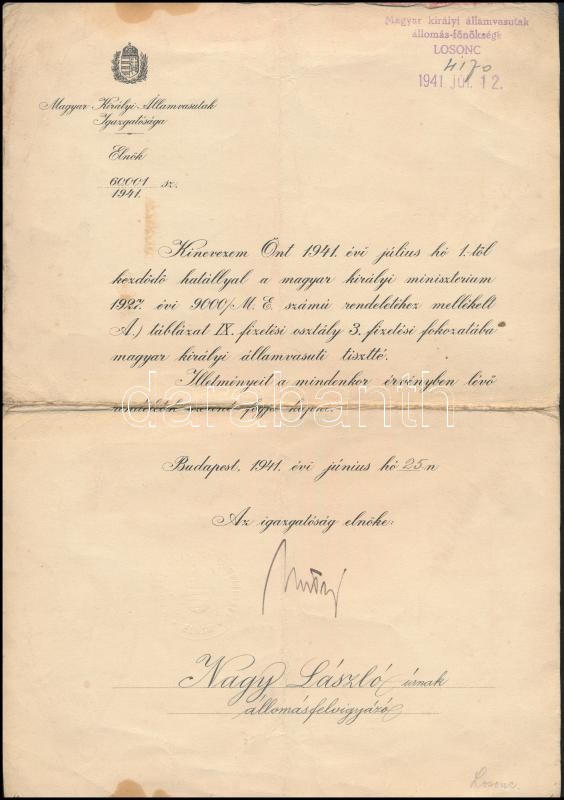 Magyar királyi államvasutak
állomás-főnöksége
LOSONC
4170
1941 JÚL. 12.
Magyar Királyi Államvasutak
Igazgatósága
Elnök
60001 sz.
1941.
Kinevezem Önt 1941. évi július hó 1.-től
kezdődő hatállyal a magyar királyi minisztérium
1927. évi 9000/M. E. számú rendeletéhez mellékelt
A.) táblázat IX. fizetési osztály 3. fizetési fokozatába
magyar királyi államvasuti tisztté.
Illetményeit a mindenkor érvényben lévő
szerint
darabanth
Budapest, 1941. évi június hó 25-n
Az igazgatóság elnöke:
Nagy László úrnak
állomásfelvigyázó
Losonc.